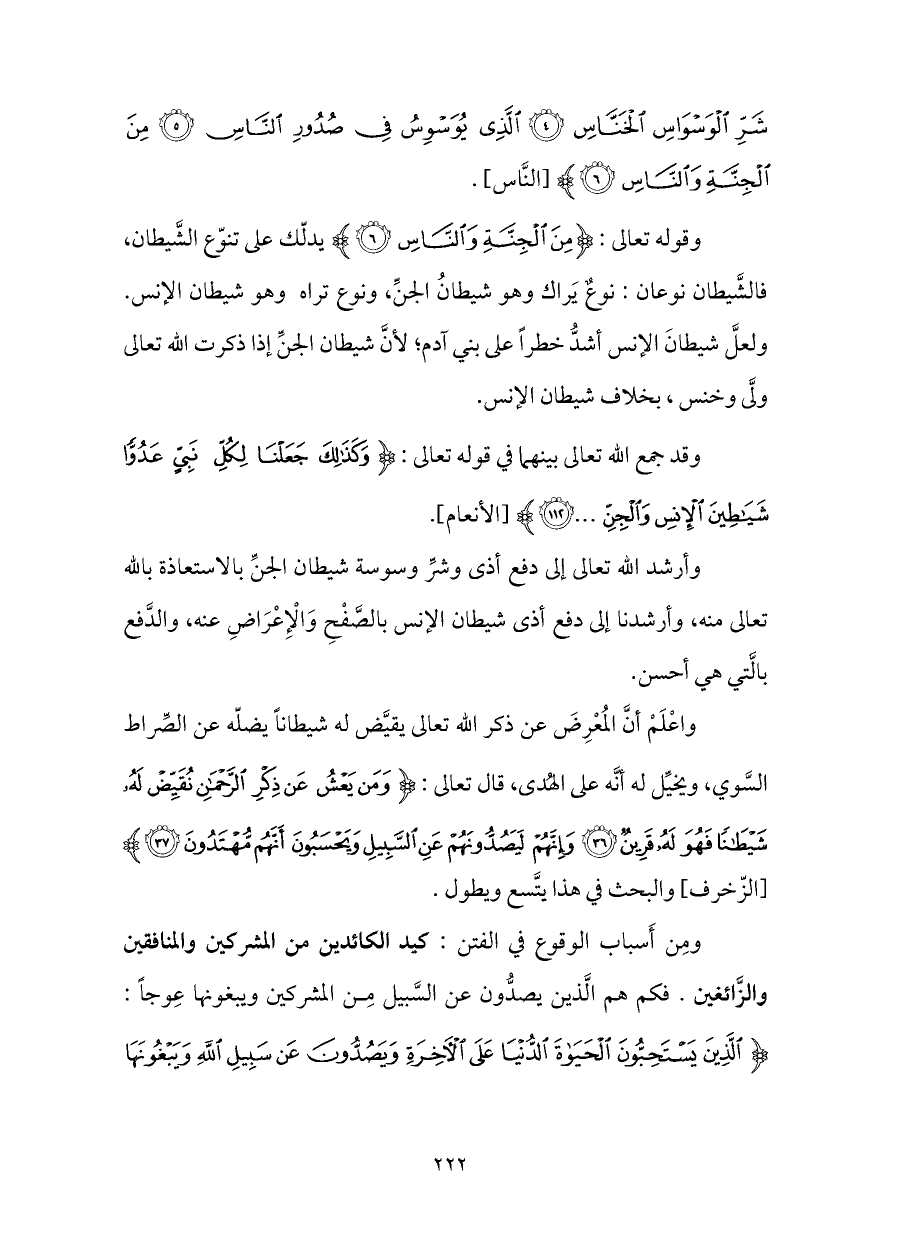 شَرِّ ٱلْوَسْوَاسِ ٱلْخَنَّاسِ ٤ ٱلَّذِى يُوَسْوِسُ فِى صُدُورِ ٱلنَّاسِ ٥ مِنَ
ٱلْجِنَّةِ وَٱلنَّاسِ ٦ ﴾ [النَّاس] .
وقوله تعالى : ﴿ مِنَ ٱلْجِنَّةِ وَٱلنَّاسِ ٦ ﴾ يدلّك على تنوّع الشَّيطان،
فالشَّيطان نوعان : نوعٌ يَراك وهو شيطانُ الجنِّ، ونوع تراه وهو شيطان الإنس.
ولعلَّ شيطانَ الإنس أشدُّ خطراً على بني آدم؛ لأنَّ شيطان الجنِّ إذا ذكرت الله تعالى
ولَّى وخنس ، بخلاف شيطان الإنس.
وقد جمع الله تعالى بينهما في قوله تعالى : ﴿ وَكَذَٰلِكَ جَعَلْنَا لِكُلِّ نَبِيٍّ عَدُوًّا
شَيَٰطِينَ ٱلْإِنسِ وَٱلْجِنِّ ... ١١٢ ﴾ [الأنعام].
وأرشد الله تعالى إلى دفع أذى وشرِّ وسوسة شيطان الجنِّ بالاستعاذة بالله
تعالى منه، وأرشدنا إلى دفع أذى شيطان الإنس بالصَّفْحِ وَالْإِعْرَاضِ عنه، والدَّفع
بالَّتي هي أحسن.
واعْلَمْ أنَّ المُعْرِضَ عن ذكر الله تعالى يقيَّض له شيطاناً يضلّه عن الصِّراط
السَّوي، ويخيِّل له أنَّه على الهُدى، قال تعالى : ﴿ وَمَن يَعْشُ عَن ذِكْرِ ٱلرَّحْمَٰنِ نُقَيِّضْ لَهُۥ
شَيْطَٰنًا فَهُوَ لَهُۥ قَرِينٌ ٣٦ وَإِنَّهُمْ لَيَصُدُّونَهُمْ عَنِ ٱلسَّبِيلِ وَيَحْسَبُونَ أَنَّهُم مُّهْتَدُونَ ٣٧ ﴾
[الزّخرف] والبحث في هذا يتَّسع ويطول .
ومِن أَسباب الوقوع في الفتن : كيد الكائدين من المشركين والمنافقين
والزَّائغين . فكم هم الَّذين يصدُّون عن السَّبيل مِـن المشركين ويبغونها عِوجاً :
﴿ ٱلَّذِينَ يَسْتَحِبُّونَ ٱلْحَيَوٰةَ ٱلدُّنْيَا عَلَى ٱلْءَاخِرَةِ وَيَصُدُّونَ عَن سَبِيلِ ٱللَّهِ وَيَبْغُونَهَا
٢٢٢